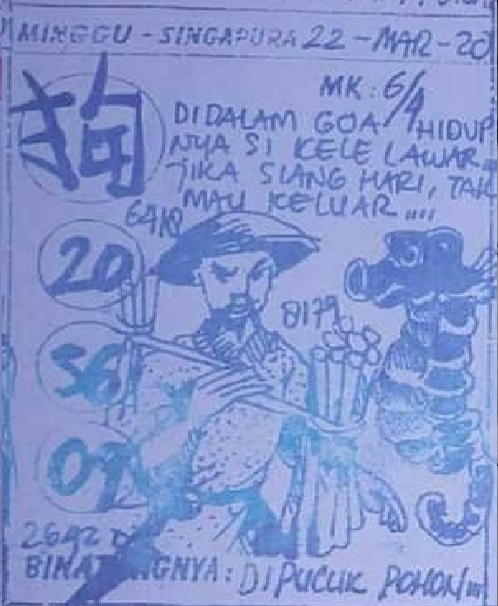 MINGGU - SINGAPURA 22 - MAR - 20
狗
MK : 6/4
DIDALAM GOA HIDUP
NYA SI KELELAWAR...
JIKA SIANG HARI, TAK
MAU KELUAR ....
20
8179
36
09
BINATANGNYA : DIPUCUK POHON...